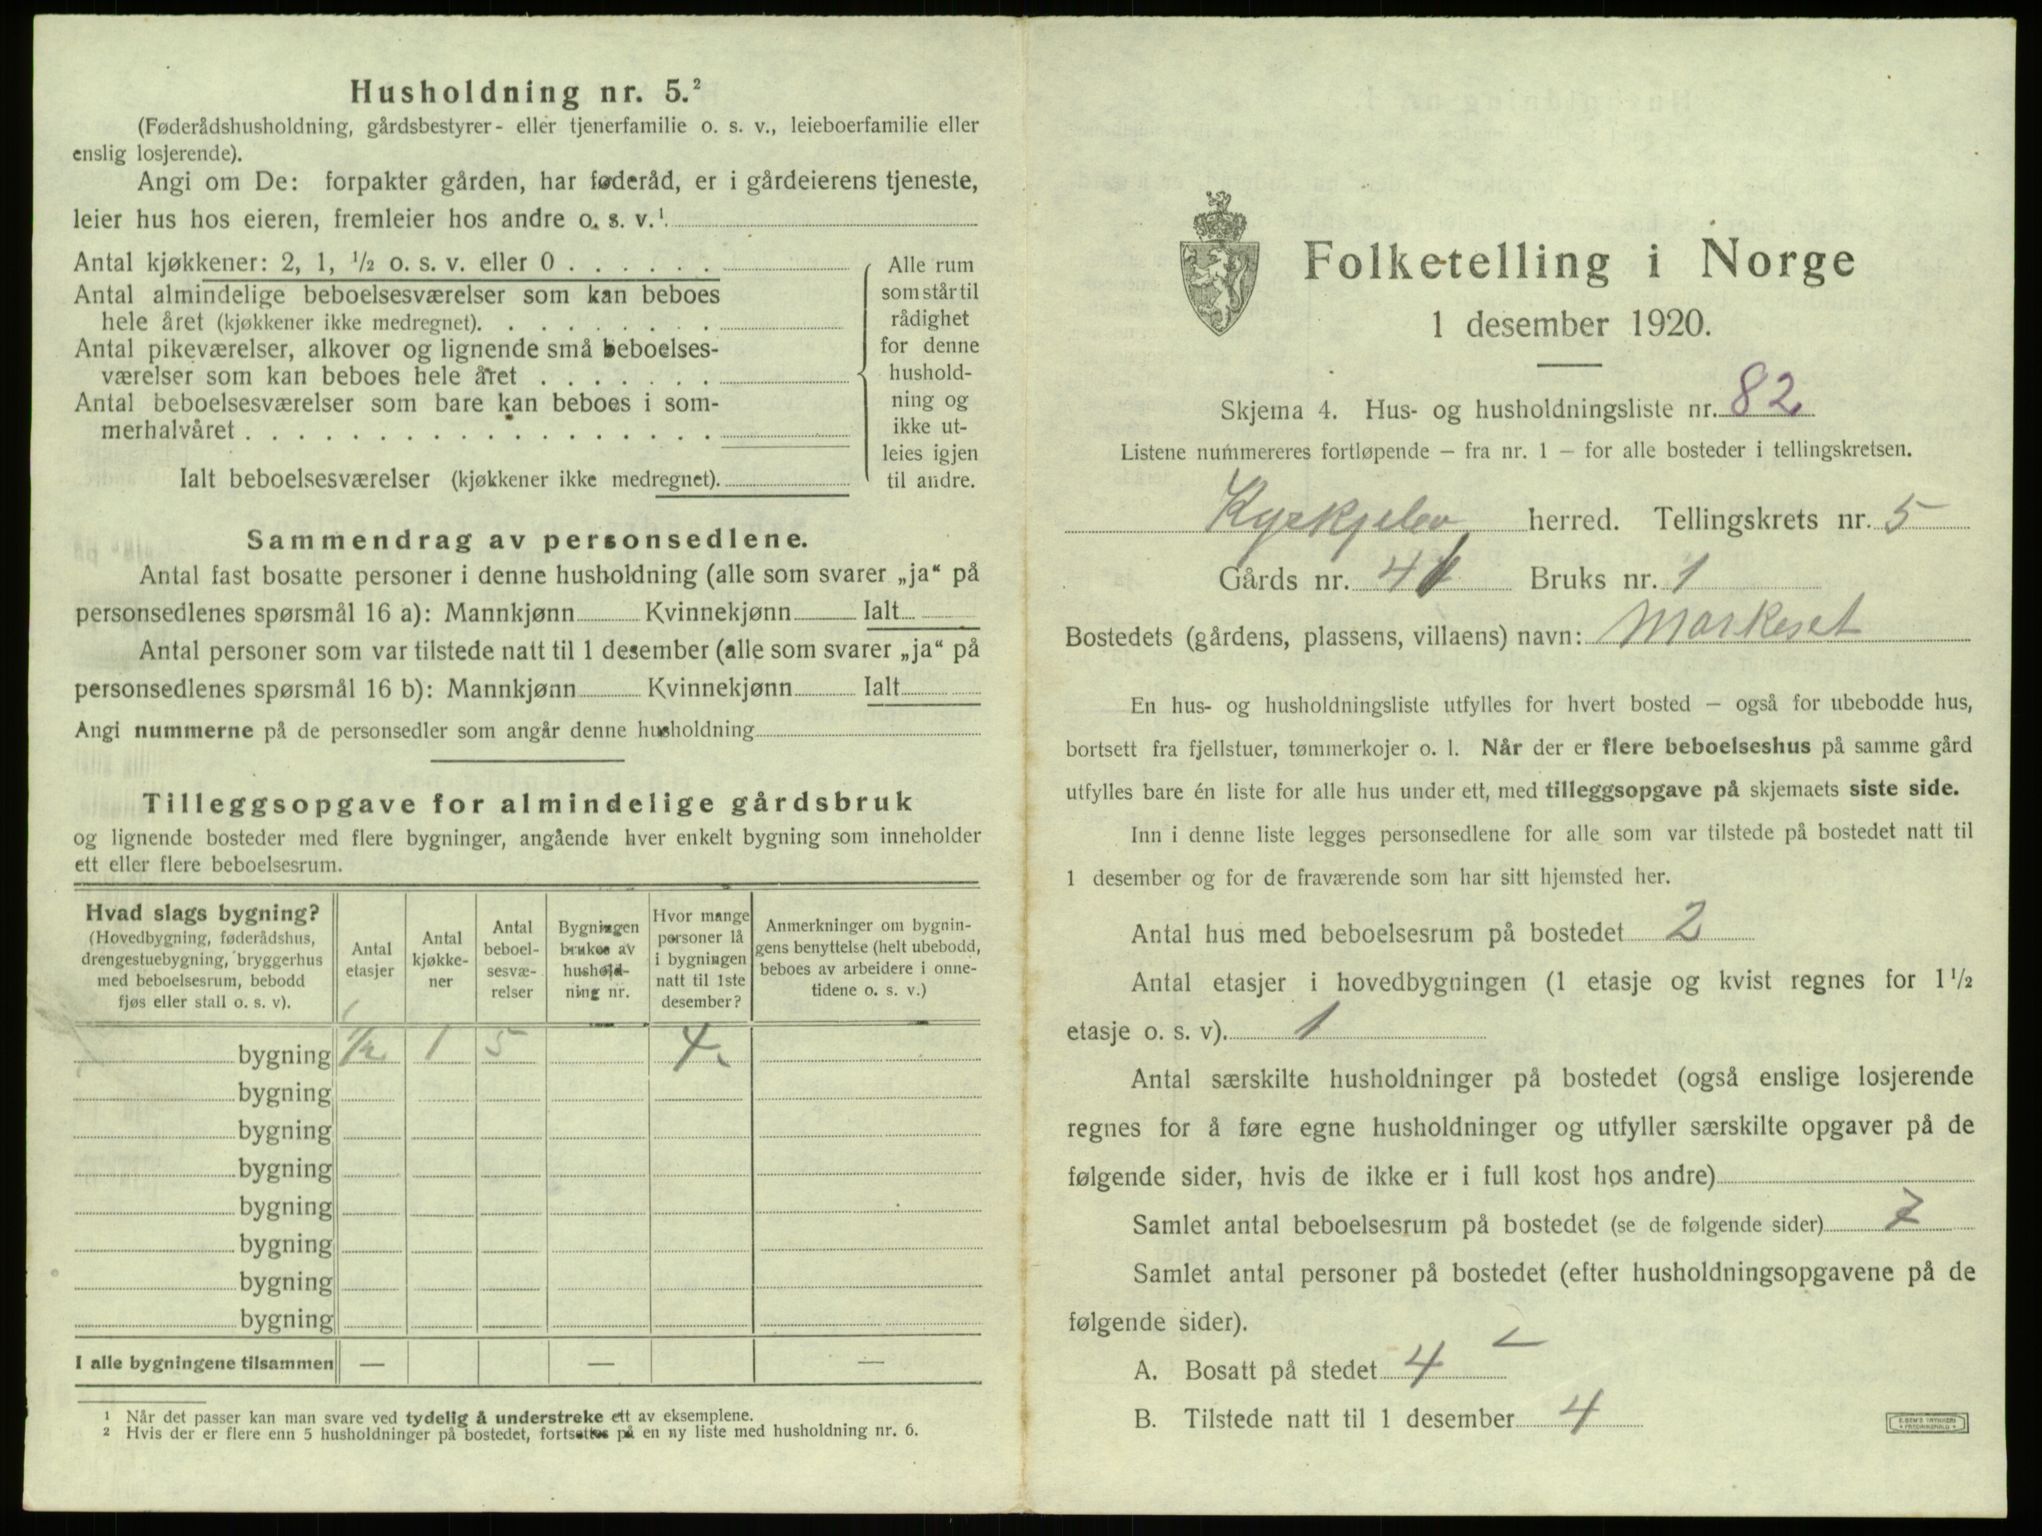 Husholdning nr. 5.²
(Føderådshusholdning, gårdsbestyrer- eller tjenerfamilie o. s. v., leieboerfamilie eller
enslig losjerende).
Angi om De: forpakter gården, har føderåd, er i gårdeierens tjeneste,
leier hus hos eieren, fremleier hos andre o. s. v.¹
Antal kjøkkener: 2, 1, ¹/₂ o. s. v. eller 0
Antal almindelige beboelsesværelser som kan beboes
hele året (kjøkkener ikke medregnet).
Antal pikeværelser, alkover og lignende små beboelses-
værelser som kan beboes hele året
Antal beboelsesværelser som bare kan beboes i som-
merhalvåret
Ialt beboelsesværelser (kjøkkener ikke medregnet).
Alle rum
som står til
rådighet
for denne
hushold-
ning og
ikke ut-
leies igjen
til andre.
Sammendrag av personsedlene.
Antal fast bosatte personer i denne husholdning (alle som svarer „ja“ på
personsedlenes spørsmål 16 a): Mannkjønn Kvinnekjønn Ialt
Antal personer som var tilstede natt til 1 desember (alle som svarer „ja“ på
personsedlenes spørsmål 16 b): Mannkjønn Kvinnekjønn Ialt
Angi nummerne på de personsedler som angår denne husholdning
Tilleggsopgave for almindelige gårdsbruk
og lignende bosteder med flere bygninger, angående hver enkelt bygning som inneholder
ett eller flere beboelsesrum.
Hvad slags bygning?
(Hovedbygning, føderådshus,
drengestuebygning, bryggerhus
med beboelsesrum, bebodd
fjøs eller stall o. s. v).
Antal
etasjer
Antal
kjøkke-
ner
Antal
beboel-
sesvæ-
relser
Bygningen
brukes av
hushold-
ning nr.
Hvor mange
personer lå
i bygningen
natt til 1ste
desember?
Anmerkninger om bygnin-
gens benyttelse (helt ubebodd,
beboes av arbeidere i onne-
tidene o. s. v.)
bygning 1/2 1 5 4
bygning
bygning
bygning
bygning
bygning
bygning
bygning
I alle bygningene tilsammen — — —
¹ Når det passer kan man svare ved tydelig å understreke ett av eksemplene.
² Hvis der er flere enn 5 husholdninger på bostedet, fortsettes på en ny liste med husholdning nr. 6.
Folketelling i Norge
1 desember 1920.
Skjema 4. Hus- og husholdningsliste nr. 82
Listene nummereres fortløpende – fra nr. 1 – for alle bosteder i tellingskretsen.
Kyrkjebø herred. Tellingskrets nr. 5
Gårds nr. 41 Bruks nr. 1
Bostedets (gårdens, plassens, villaens) navn: Markeset
En hus- og husholdningsliste utfylles for hvert bosted – også for ubebodde hus,
bortsett fra fjellstuer, tømmerkojer o. l. Når der er flere beboelseshus på samme gård
utfylles bare én liste for alle hus under ett, med tilleggsopgave på skjemaets siste side.
Inn i denne liste legges personsedlene for alle som var tilstede på bostedet natt til
1 desember og for de fraværende som har sitt hjemsted her.
Antal hus med beboelsesrum på bostedet 2
Antal etasjer i hovedbygningen (1 etasje og kvist regnes for 1¹/₂
etasje o. s. v). 1
Antal særskilte husholdninger på bostedet (også enslige losjerende
regnes for å føre egne husholdninger og utfyller særskilte opgaver på de
følgende sider, hvis de ikke er i full kost hos andre)
Samlet antal beboelsesrum på bostedet (se de følgende sider) 7
Samlet antal personer på bostedet (efter husholdningsopgavene på de
følgende sider).
A. Bosatt på stedet 4
B. Tilstede natt til 1 desember 4